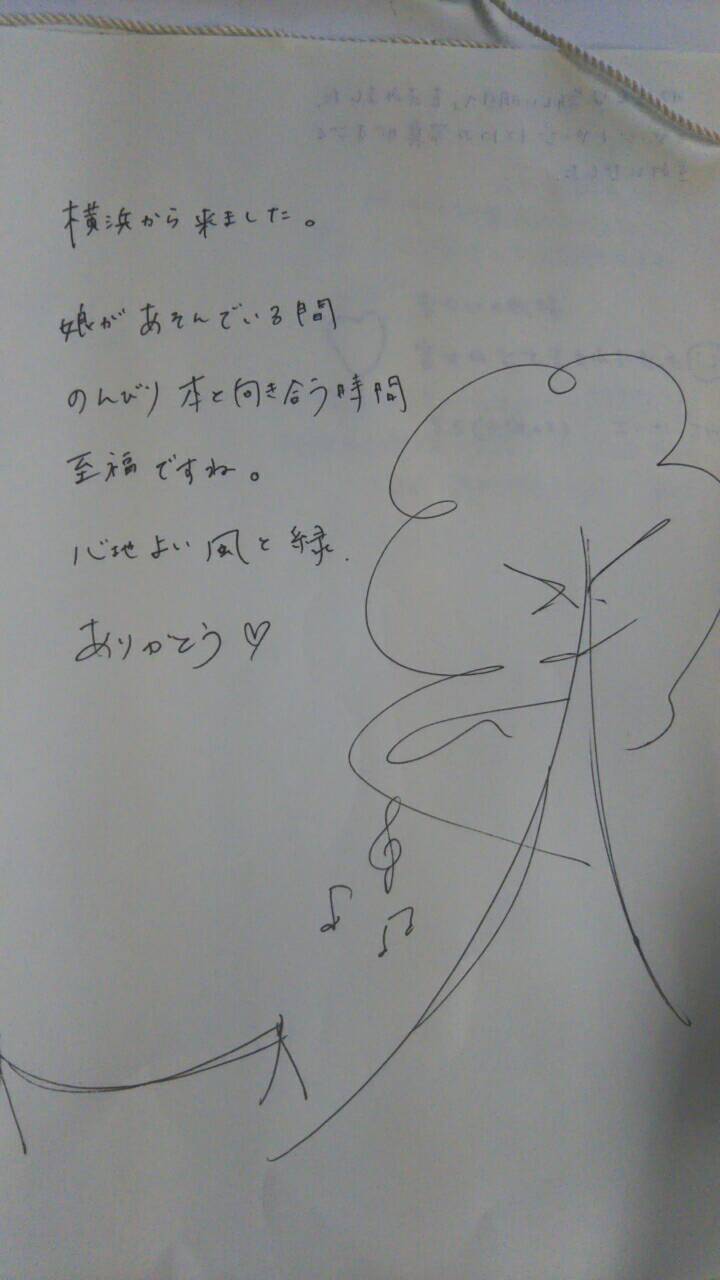 横浜から来ました。
娘があそんでいる間
のんびり本と向き合う時間
至福ですね。
心地よい風と緑.
ありがとう♡